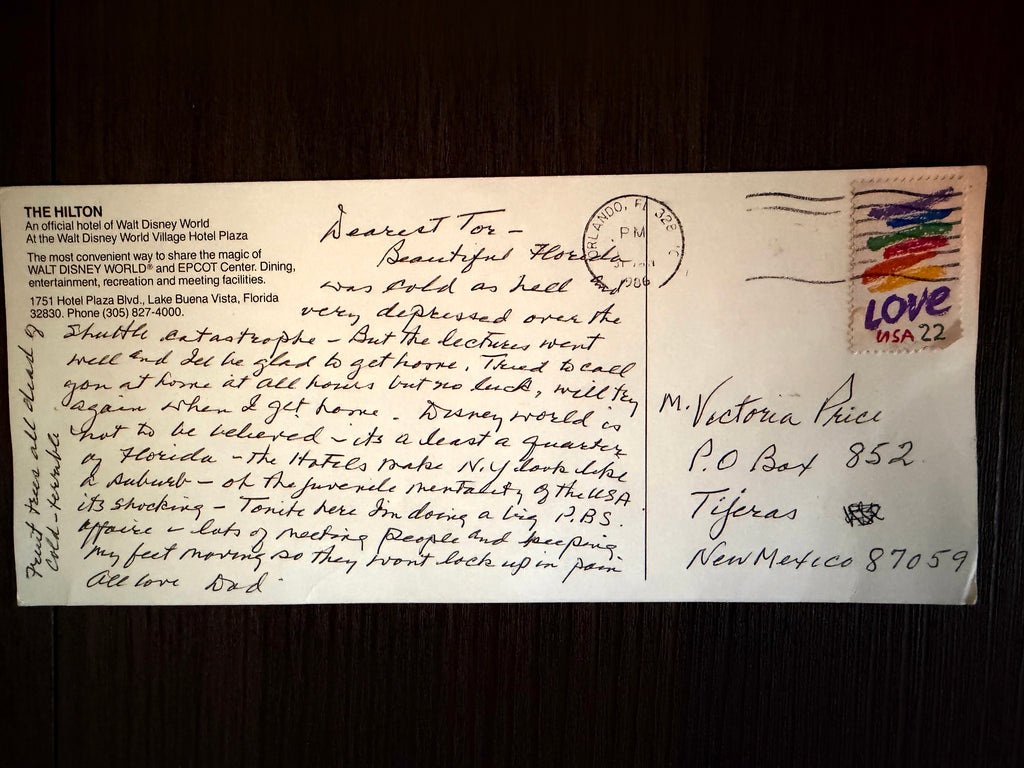 THE HILTON
An official hotel of Walt Disney World
At the Walt Disney World Village Hotel Plaza
The most convenient way to share the magic of
WALT DISNEY WORLD® and EPCOT Center. Dining,
entertainment, recreation and meeting facilities.
1751 Hotel Plaza Blvd., Lake Buena Vista, Florida
32830. Phone (305) 827-4000.
Dearest Tor –
Beautiful Florida
was cold as hell and
very depressed over the
Shuttle catastrophe – But the lectures went
well and I'll be glad to get home. Tried to call
you at home at all hours but no luck, will try
again when I get home. Disney world is
not to be believed – its a least a quarter
of Florida – the Hotels make N.Y look like
a suburb – oh the juvenile mentality of the USA
its shocking – Tonite here I'm doing a big P.BS.
affaire – lots of meeting people and keeping
my feet moving so they wont lock up in pain
All love Dad
Fruit trees all dead of
cold – terrible
ORLANDO, FL 328
PM
1986
LOVE
USA 22
M. Victoria Price
P.O Box 852
Tijeras
New Mexico 87059